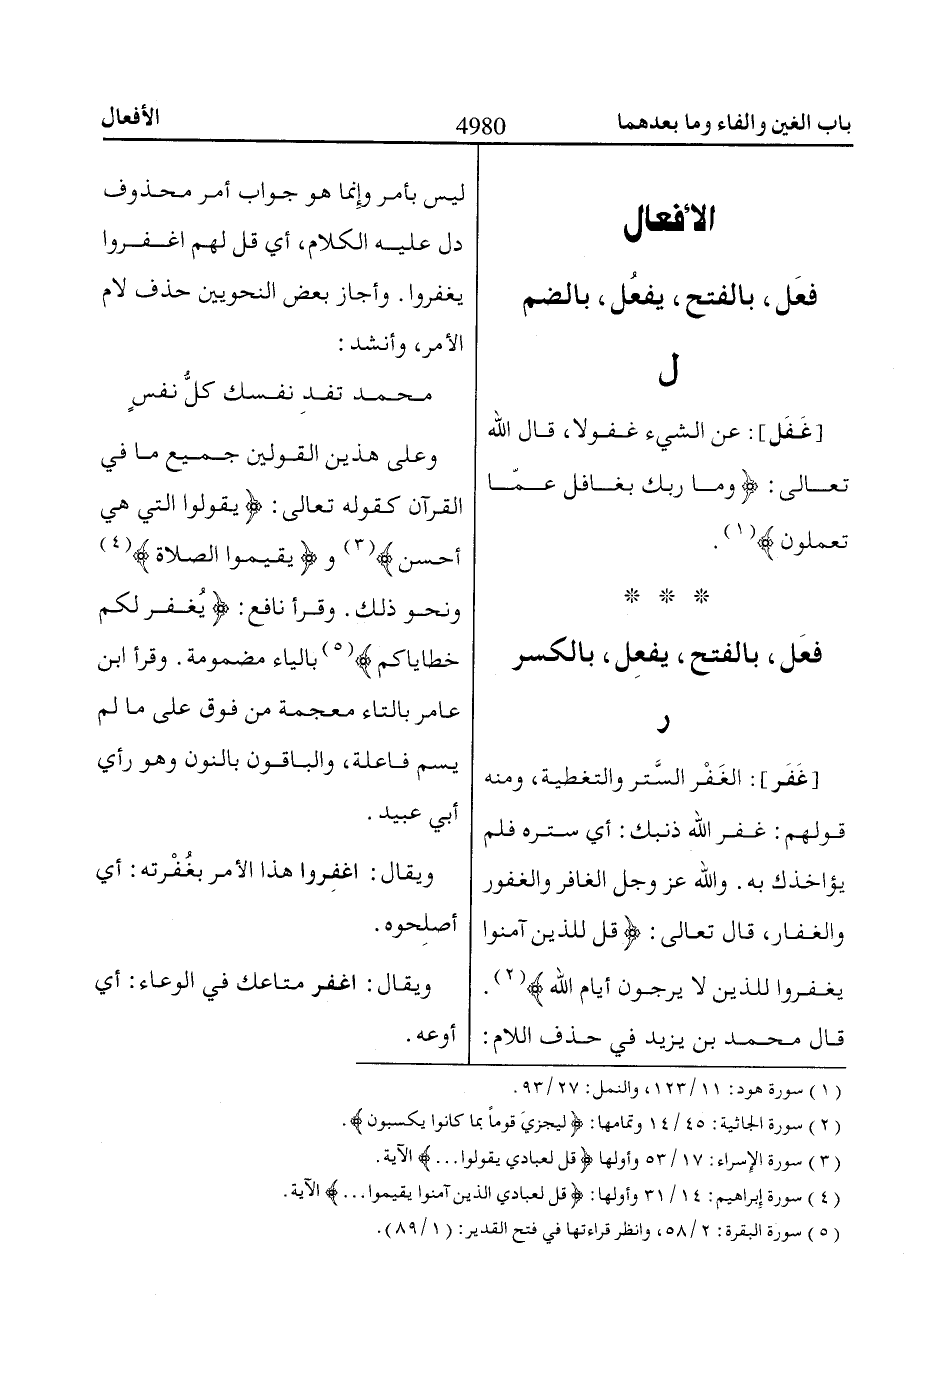 باب الغين والفاء وما بعدهما
4980
الأفعال
الأفعال
فعَل، بالفتح، يفعُل، بالضم
ل
[غَفَل]: عن الشيء غفولا، قال الله
تعالى: ﴿ وما ربك بغافل عمّا
تعملون ﴾(١).
* * *
فعَل، بالفتح، يفعِل، بالكسر
ر
[غَفَر]: الغَفْر السَّتر والتغطية، ومنه
قولهم: غفر الله ذنبك: أي ستره فلم
يؤاخذك به. والله عز وجل الغافر والغفور
والغفار، قال تعالى: ﴿ قل للذين آمنوا
يغفروا للذين لا يرجون أيام الله ﴾(٢).
قال محمد بن يزيد في حذف اللام:
ليس بأمر وإنما هو جواب أمر محذوف
دل عليه الكلام، أي قل لهم اغفروا
يغفروا. وأجاز بعض النحويين حذف لام
الأمر، وأنشد:
محمد تفدِ نفسك كلُّ نفسٍ
وعلى هذين القولين جميع ما في
القرآن كقوله تعالى: ﴿ يقولوا التي هي
أحسن ﴾(٣) و ﴿ يقيموا الصلاة ﴾(٤)
ونحو ذلك. وقرأ نافع: ﴿ يُغفر لكم
خطاياكم ﴾(٥) بالياء مضمومة. وقرأ ابن
عامر بالتاء معجمة من فوق على ما لم
يسم فاعلة، والباقون بالنون وهو رأي
أبي عبيد.
ويقال: اغفروا هذا الأمر بغُفْرته: أي
أصلحوه.
ويقال: اغفر متاعك في الوعاء: أي
أوعه.
(١) سورة هود: ١١/ ١٢٣، والنمل: ٢٧/ ٩٣.
(٢) سورة الجاثية: ٤٥/ ١٤ وتمامها: ﴿ ليجزيَ قوماً بما كانوا يكسبون ﴾.
(٣) سورة الإسراء: ١٧/ ٥٣ وأولها ﴿ قل لعبادي يقولوا... ﴾ الآية.
(٤) سورة إبراهيم: ١٤/ ٣١ وأولها: ﴿ قل لعبادي الذين آمنوا يقيموا... ﴾ الآية.
(٥) سورة البقرة: ٢/ ٥٨، وانظر قراءتها في فتح القدير: (١/ ٨٩).